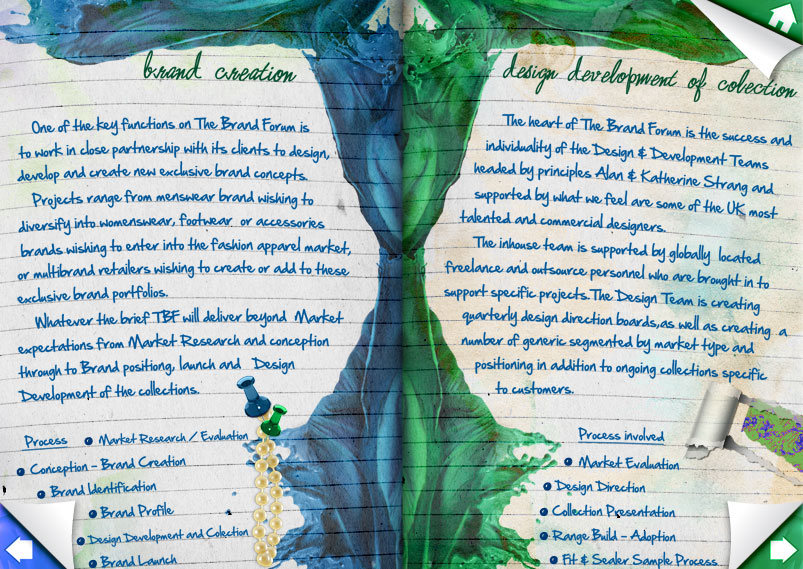 brand creation
One of the key functions on The Brand Forum is
to work in close partnership with its clients to design,
develop and create new exclusive brand concepts.
Projects range from menswear brand wishing to
diversify into womenswear, footwear or accessories
brands wishing to enter into the fashion apparel market,
or multibrand retailers wishing to create or add to these
exclusive brand portfolios.
Whatever the brief TBF will deliver beyond Market
expectations from Market Research and conception
through to Brand positiong, launch and Design
Development of the collections.
Process
Market Research / Evaluation
Conception - Brand Creation
Brand Identification
Brand Profile
Design Development and Colection
Brand Launch
design development of colection
The heart of The Brand Forum is the success and
individuality of the Design & Development Teams
headed by principles Alan & Katherine Strang and
supported by what we feel are some of the UK most
talented and commercial designers.
The inhouse team is supported by globally located
freelance and outsource personnel who are brought in to
support specific projects. The Design Team is creating
quarterly design direction boards, as well as creating a
number of generic segmented by market type and
positioning in addition to ongoing collections specific
to customers.
Process involved
Market Evaluation
Design Direction
Collection Presentation
Range Build - Adoption
Fit & Sealer Sample Process